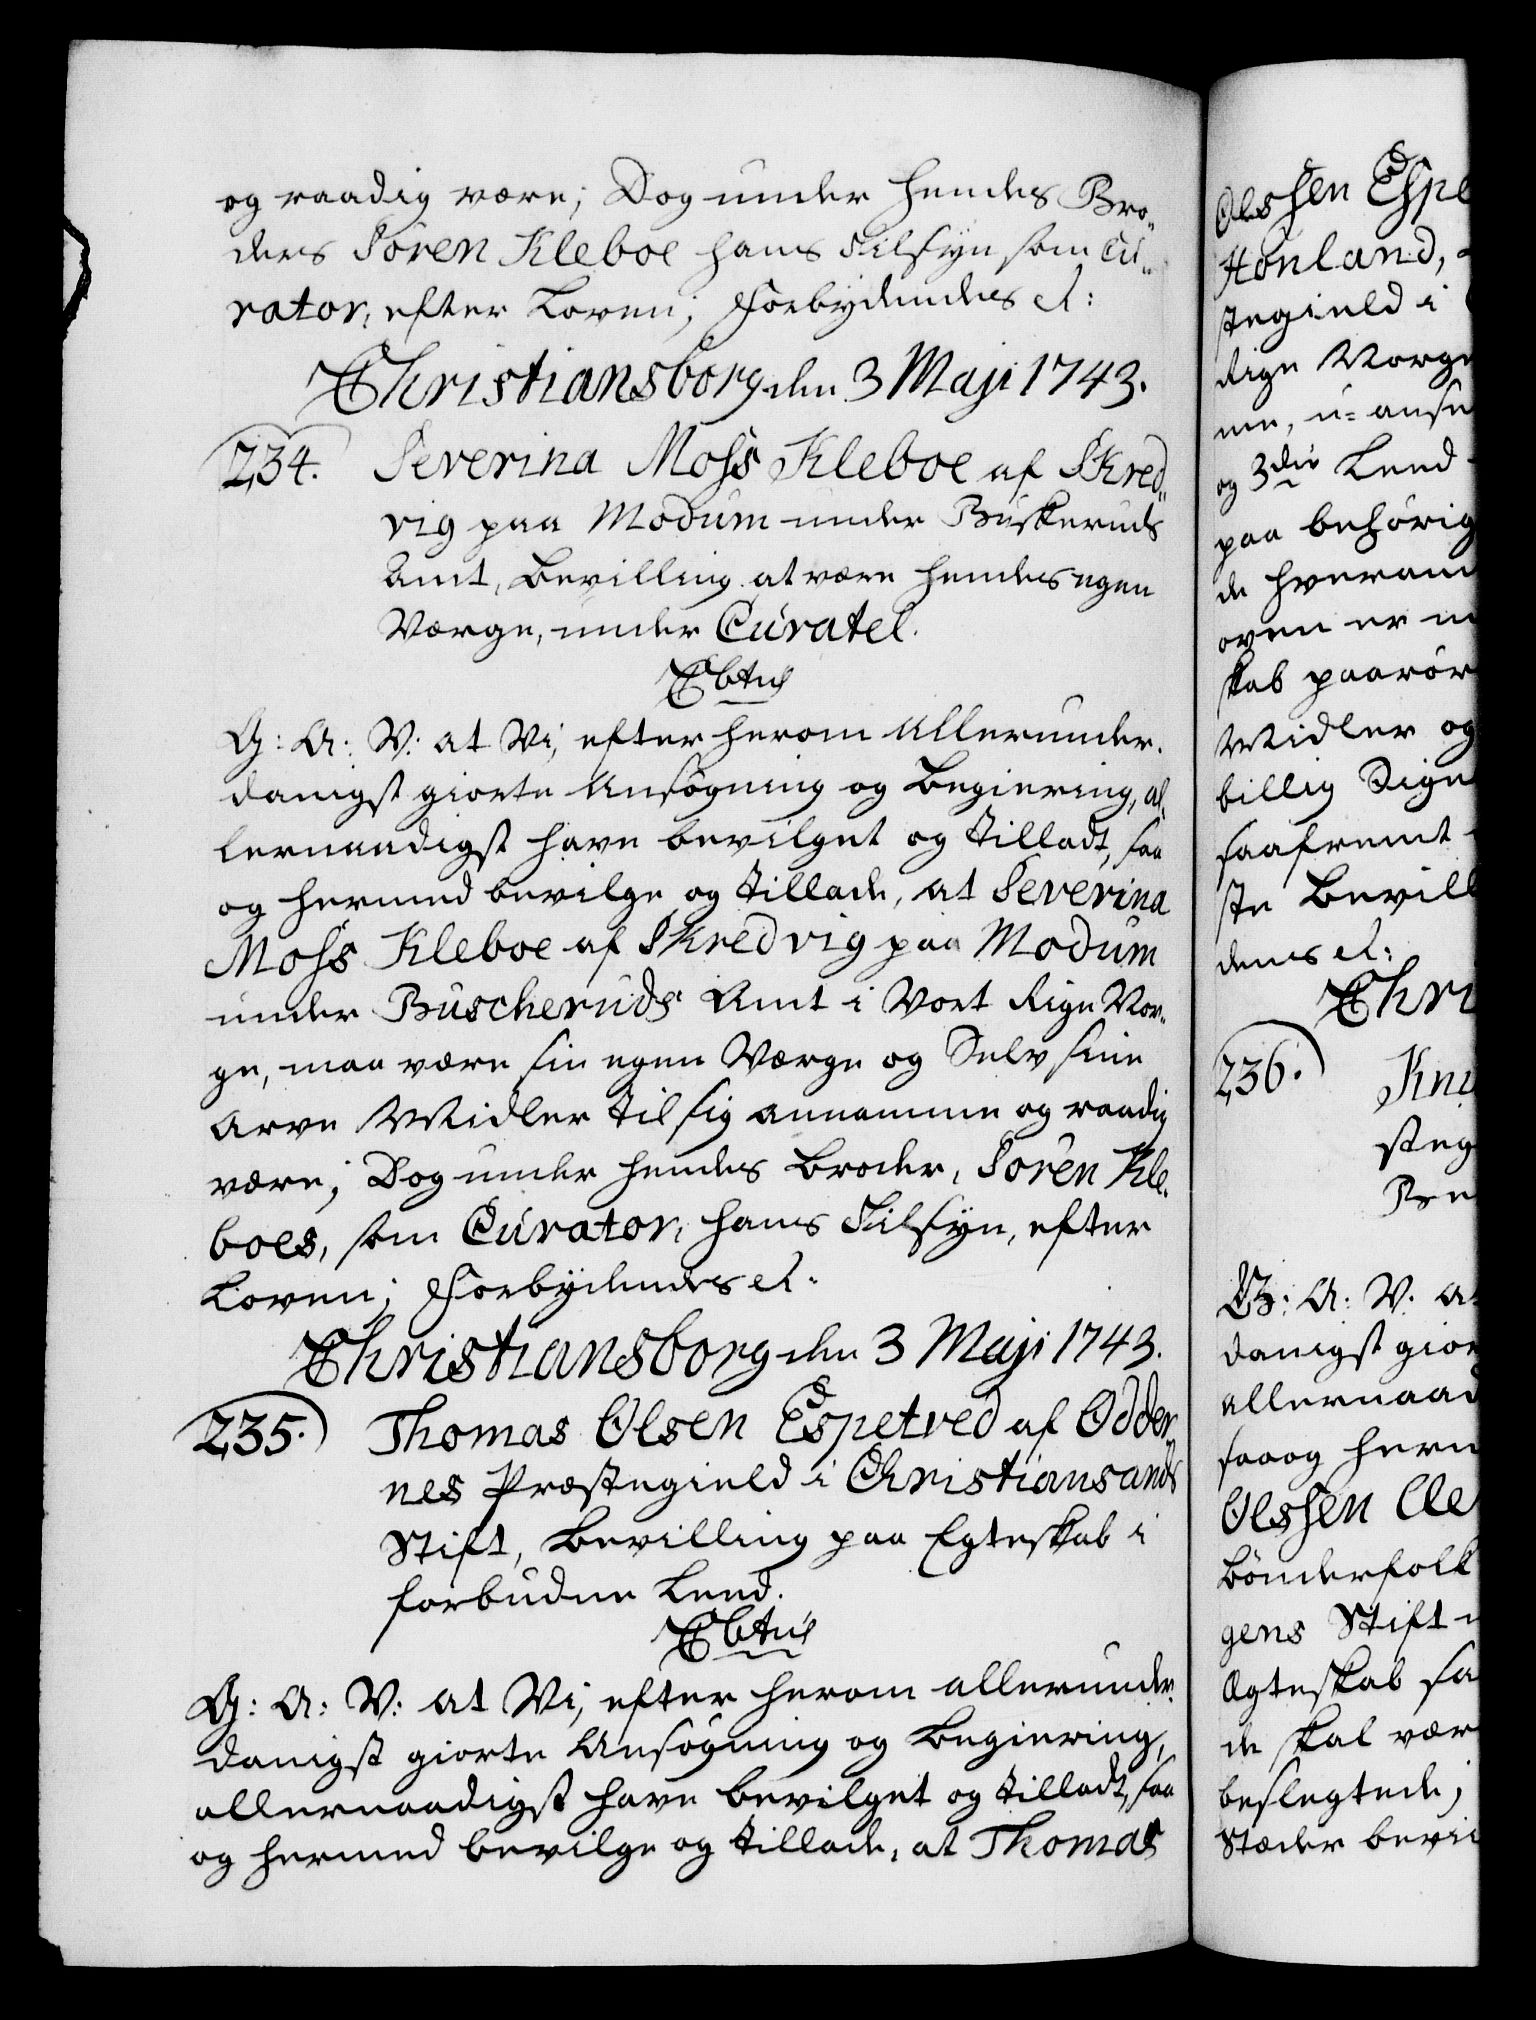 og raadig være; Dog under hendes Bro„
ders Sören Kleboe hans Tilsyn som Cu„
rator, efter Loven; Forbydendes etc:
Christiansborg den 3 Maji 1743.
234. Severina Moss Kleboe af Skred„
vig paa Modum under Buskeruds
Amt, Bevilling at være hendes egen
Værge, under Curatel.
G: A: V: at Vi, efter herom Allerunder„
danigst giorte Ansøgning og Begiering, al„
lernaadigst have bevilget og tilladt, saa
og hermed bevilge og tillade, at Severina
Moss Kleboe af Skredvig paa Modum
under Buscheruds Amt i Vort Rige Nor„
ge, maa være sin egen Værge og Selv sine
Arve Midler til sig annamme og raadig
være; Dog under hendes Broder, Sören Kle„
boes, som Curator, hans Tilsyn, efter
Loven; Forbydendes etc:
Christiansborg den 3 Maji 1743.
235. Thomas Olsen Espetved af Odder„
nes Præstegield i Christiansands
Stift, Bevilling paa Egteskab i
forbudne Leed.
G: A: V: at Vi, efter herom allerunder„
danigst giorte Ansøgning og Begiering,
allernaadigst have bevilget og tilladt, saa
og hermed bevilge og tillade, at Thomas
Olssen Espe
Hönland,
stegield i
Rige Norge
og 3die Leed
paa behörig
de hveran
oven er
skab paarör
Midler og
billig Rige
saafremt
ste Bevill
dens etc:
Chri
236. Knu
steg
Be
G: A: V: a
danigst gior
allernaad
saa og herm
Olssen Cle
Bönderfolk
gens Stift
Ægteskab sa
de skal vær
beslegtede;
Stæder bevi